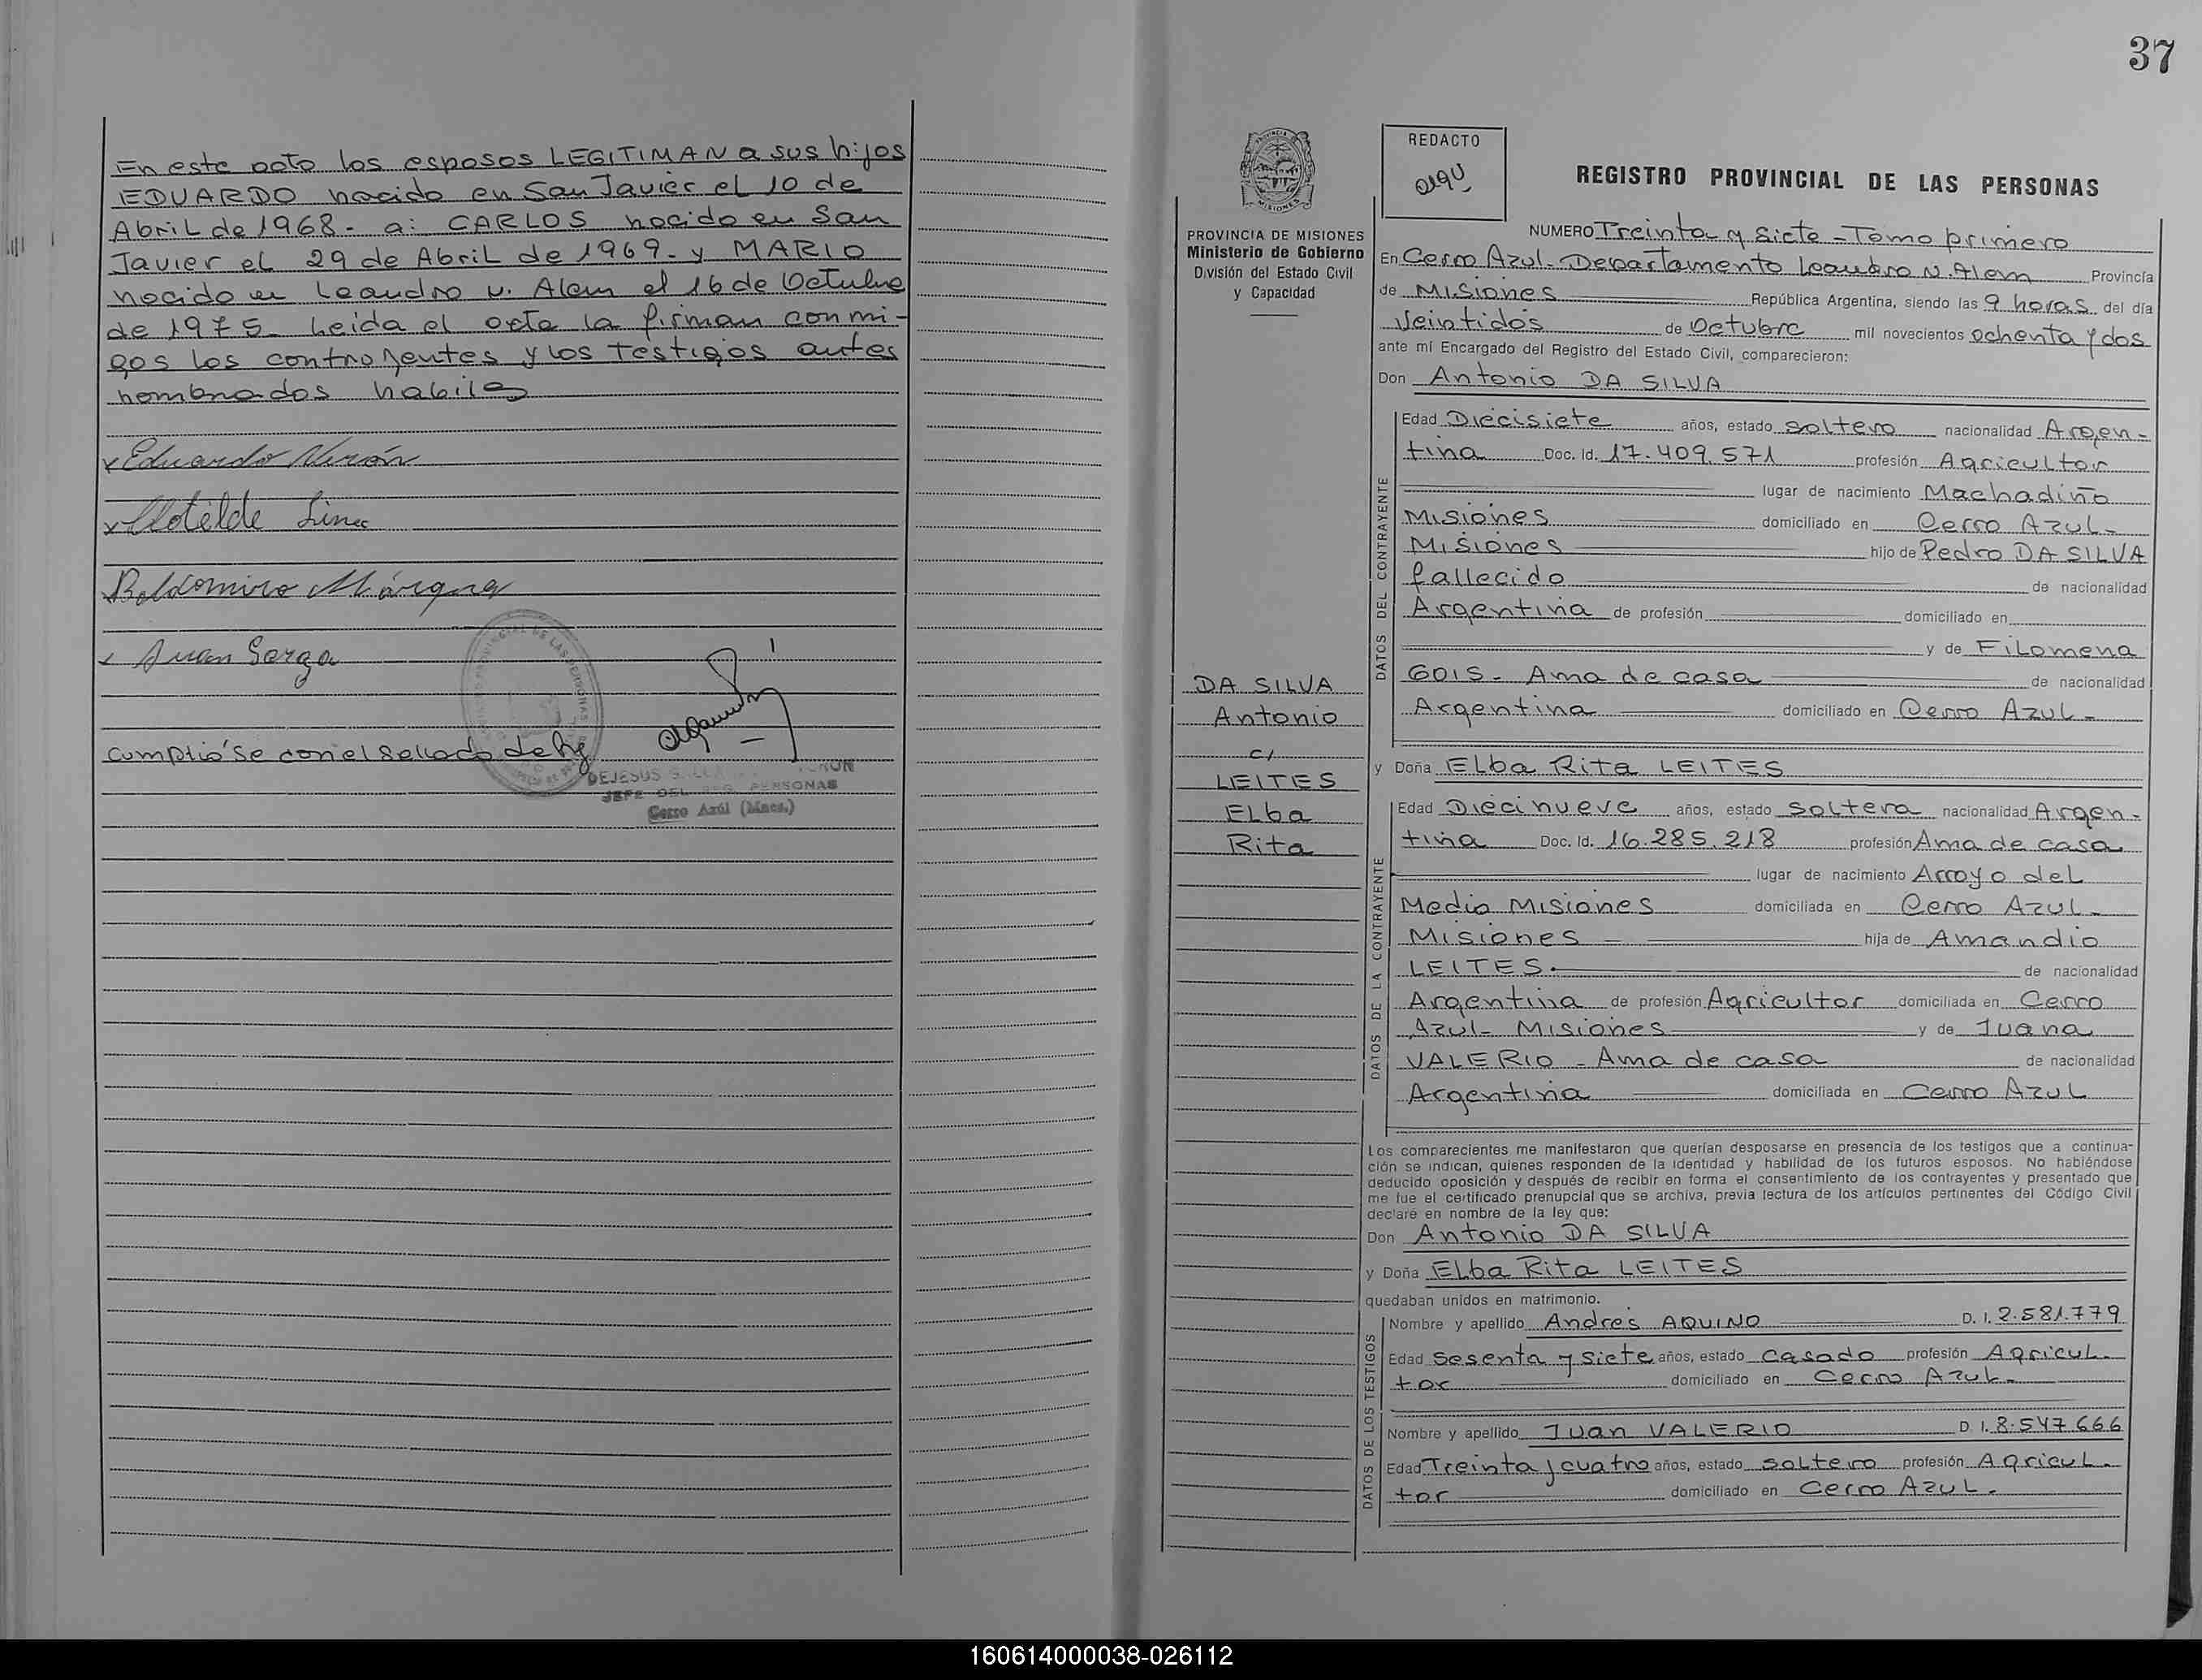 En este acto los esposos LEGITIMAN a sus hijos
EDUARDO nacido en San Javier el 10 de
Abril de 1968- a: CARLOS nacido en San
Javier el 29 de Abril de 1969- y MARIO
nacido en Leandro N. Alem el 16 de Octubre
de 1975- Leida el acta la firman conmi-
gos los contrayentes y los testigos antes
nombrados habiles
x Eduardo Verón
x Clotilde
Baldomiro Márquez
x Juan
cumplió se con el sellado de ley
DEJESUS
JEFE DEL REG. PERSONAS
Cerro Azúl (Mnes.)
37
PROVINCIA DE MISIONES
Ministerio de Gobierno
División del Estado Civil
y Capacidad
DA SILVA
Antonio
c/
LEITES
Elba
Rita
REDACTO
REGISTRO PROVINCIAL DE LAS PERSONAS
NUMERO Treinta y siete - Tomo primero
En Cerro Azul- Departamento Leandro N. Alem Provincia
de Misiones República Argentina, siendo las 9 horas del día
Veintidós de Octubre mil novecientos ochenta y dos
ante mí Encargado del Registro del Estado Civil, comparecieron:
Don Antonio DA SILVA
DATOS DEL CONTRAYENTE
Edad Diecisiete años, estado soltero nacionalidad Argen-
tina Doc. Id. 17.409.571 profesión Agricultor
lugar de nacimiento Machadiño
Misiones domiciliado en Cerro Azul-
Misiones hijo de Pedro DA SILVA
fallecido de nacionalidad
Argentina de profesión domiciliado en
y de Filomena
GOIS- Ama de casa de nacionalidad
Argentina domiciliado en Cerro Azul-
y Doña Elba Rita LEITES
DATOS DE LA CONTRAYENTE
Edad Diecinueve años, estado soltera nacionalidad Argen-
tina Doc. Id. 16.285.218 profesión Ama de casa
lugar de nacimiento Arroyo del
Medio Misiones domiciliada en Cerro Azul-
Misiones hija de Amandio
LEITES. de nacionalidad
Argentina de profesión Agricultor domiciliada en Cerro
Azul- Misiones y de Juana
VALERIO - Ama de casa de nacionalidad
Argentina domiciliada en Cerro Azul
Los comparecientes me manifestaron que querían desposarse en presencia de los testigos que a continua-
ción se indican, quienes responden de la identidad y habilidad de los futuros esposos. No habiéndose
deducido oposición y después de recibir en forma el consentimiento de los contrayentes y presentado que
me fue el certificado prenupcial que se archiva, previa lectura de los artículos pertinentes del Código Civil
declaré en nombre de la ley que:
Don Antonio DA SILVA
y Doña Elba Rita LEITES
quedaban unidos en matrimonio.
DATOS DE LOS TESTIGOS
Nombre y apellido Andres AQUINO D. I. 2.581.779
Edad sesenta y siete años, estado casado profesión Agricul-
tor domiciliado en Cerro Azul-
Nombre y apellido Juan VALERIO D I. 8.547.666
Edad Treinta y cuatro años, estado soltero profesión Agricul-
tor domiciliado en Cerro Azul.
160614000038-026112